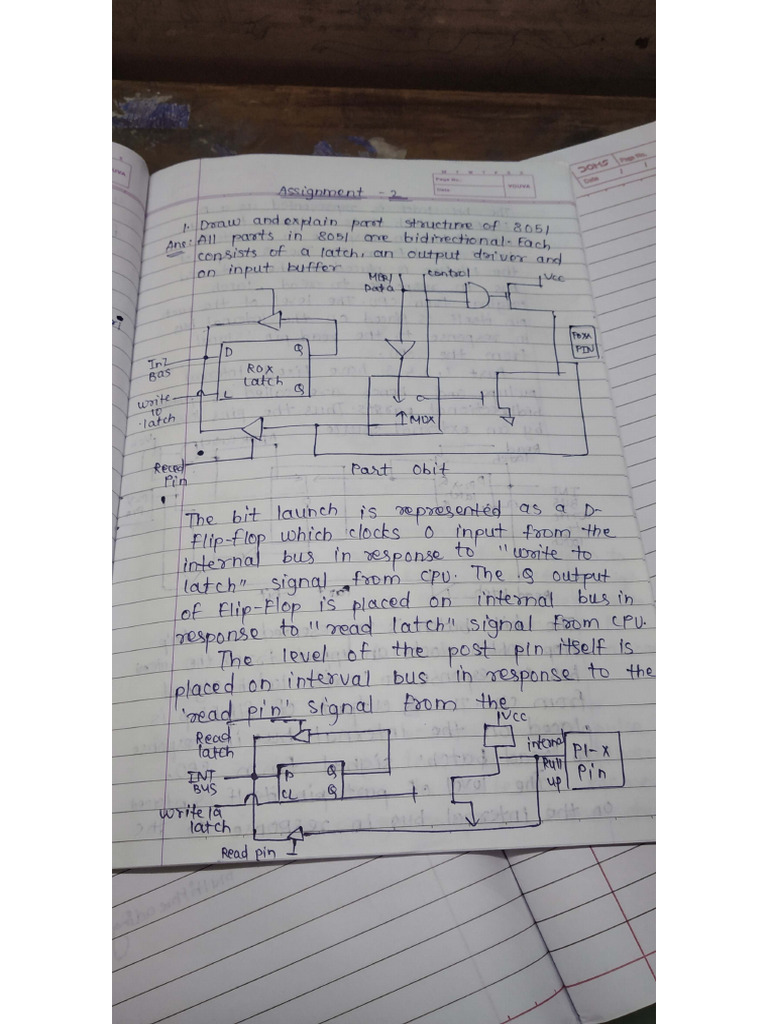 Assignment - 2
1. Draw and explain part structure of 8051
Ans: All parts in 8051 are bidirectional. Each
consists of a latch, an output driver and
an input buffer
control
Vcc
Data
D Q
Int
Bus
Rox
Latch
L Q
write
to
latch
MUX
PIN
Pin
Part 0 bit
The bit launch is represented as a D-
flip-flop which clocks 0 input from the
internal bus in response to "write to
latch" signal from CPU. The Q output
of Flip-Flop is placed on internal bus in
response to "read latch" signal from CPU.
The level of the post pin itself is
placed on interval bus in response to the
'read pin' signal from the
Read
latch
Vcc
internal
Pull
up
P1-X
Pin
INT
BUS
D Q
CL Q
write la
latch
Read pin